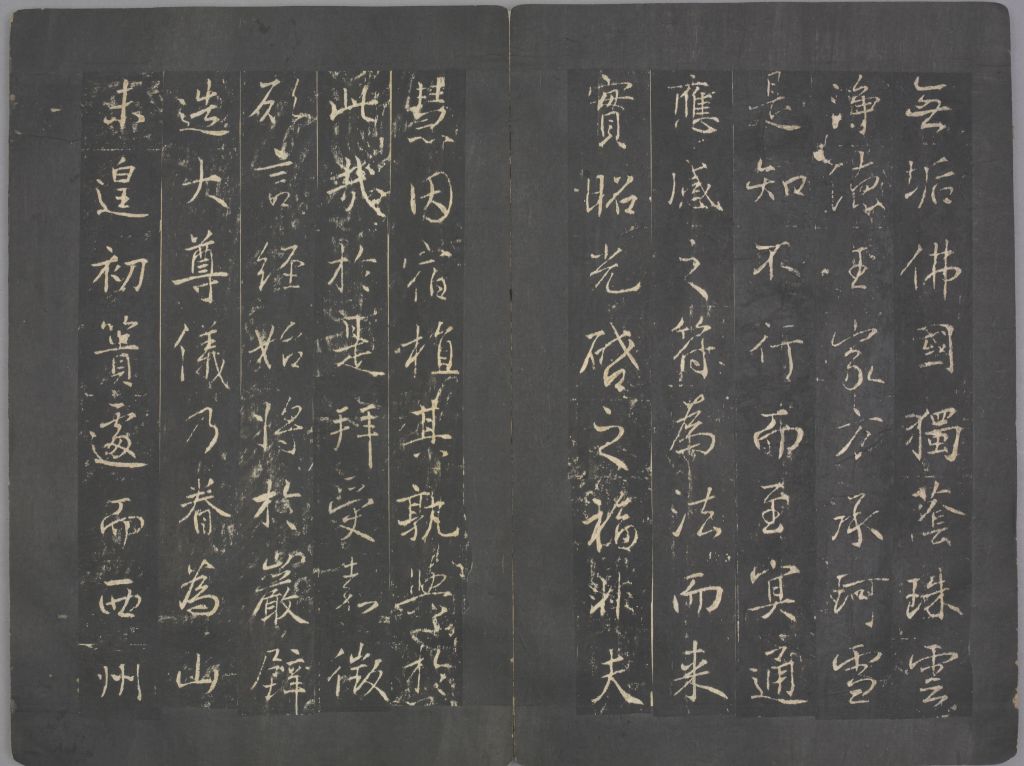 無垢佛國獨蔭珠雲
淨德王家方承珂雪
是知不行而至冥通
應感之符為法而来
實昭光啓之福非夫
慧因宿植其孰與於
此哉於是拜受嘉徵
願言經始將於巖壁
造大尊儀乃眷為山
未遑初簣遽而西州